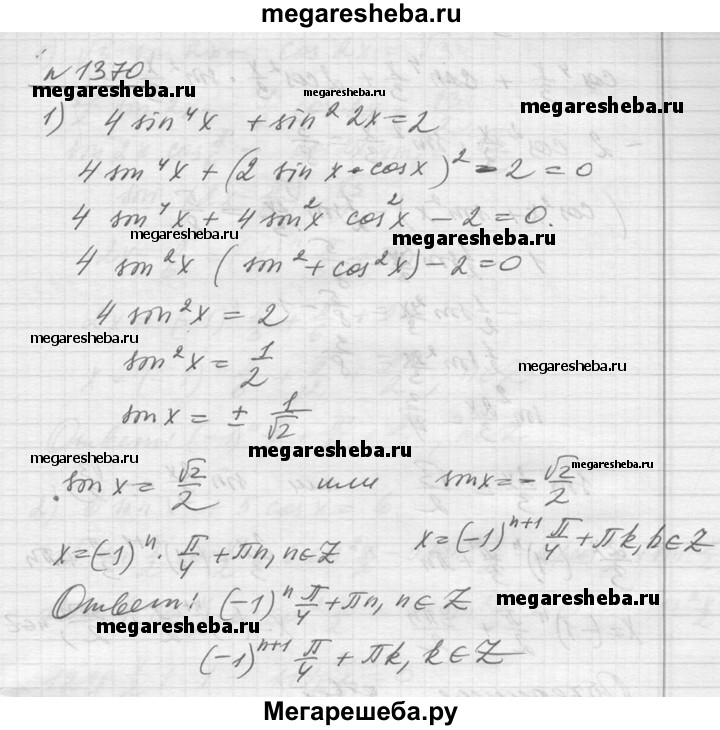 megaresheba.ru
№ 1370
megaresheba.ru megaresheba.ru megaresheba.ru
1) 4 sin⁴x + sin² 2x = 2
4 sin⁴x + (2 sin x · cos x)² - 2 = 0
4 sin⁴x + 4 sin²x cos²x - 2 = 0.
megaresheba.ru megaresheba.ru
4 sin²x (sin² + cos²x) - 2 = 0
4 sin²x = 2
megaresheba.ru megaresheba.ru
sin²x = 1/2
sin x = ± 1/√2
megaresheba.ru megaresheba.ru megaresheba.ru
sin x = √2/2 или sin x = - √2/2
x = (-1)ⁿ · π/4 + πn, n ∈ Z x = (-1)ⁿ⁺¹ π/4 + πk, k ∈ Z
Ответ: (-1)ⁿ π/4 + πn, n ∈ Z
megaresheba.ru megaresheba.ru
(-1)ⁿ⁺¹ π/4 + πk, k ∈ Z
Мегарешеба.ру